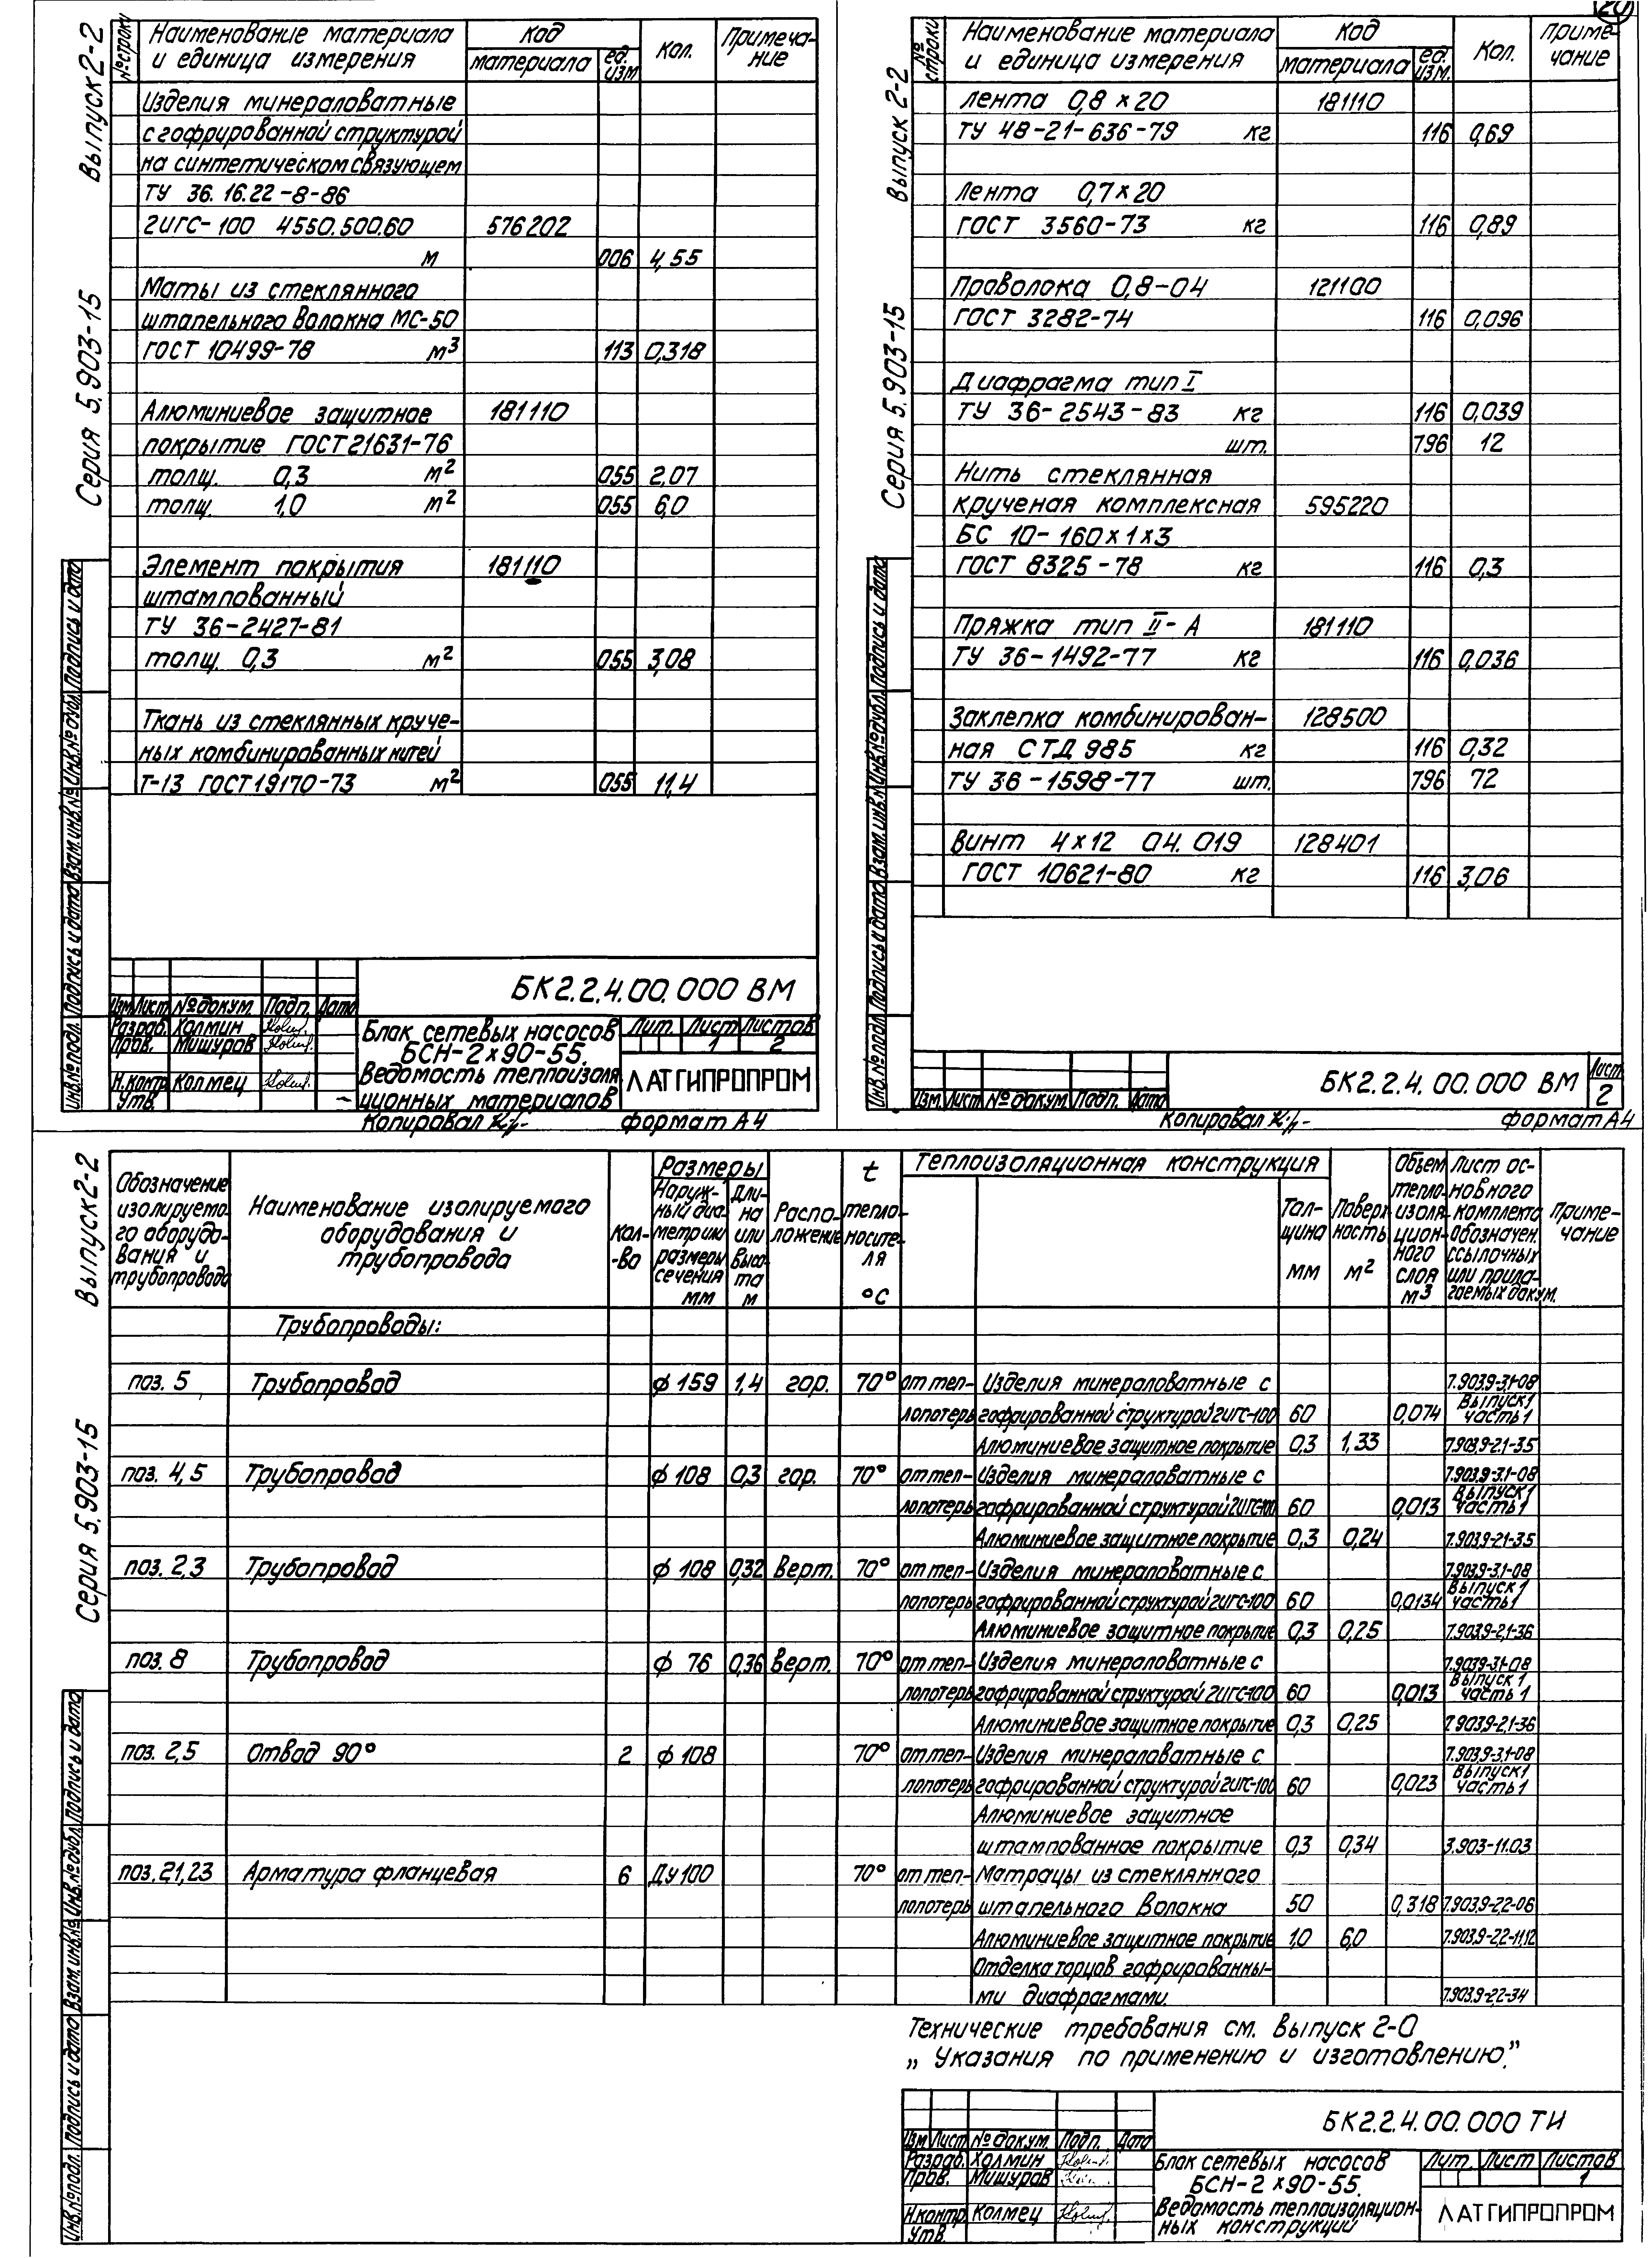 Выпуск 2-2
Серия 5.903-15
№ строки
Наименование материала
и единица измерения
Код
материала
ед. изм
Кол.
Примеча-
ние
Изделия минераловатные
с гофрированной структурой
на синтетическом связующем
ТУ 36.16.22-8-86
2ИГС-100 4550.500.60 576202
м 006 4,55
Маты из стеклянного
штапельного волокна МС-50
ГОСТ 10499-78 м³ 113 0,318
Алюминиевое защитное 181110
покрытие ГОСТ 21631-76
толщ. 0,3 м² 055 2,07
толщ. 1,0 м² 055 6,0
Элемент покрытия 181110
штампованный
ТУ 36-2427-81
толщ. 0,3 м² 055 3,08
Ткань из стеклянных круче-
ных комбинированных нитей
Т-13 ГОСТ 19170-73 м² 055 11,4
Инв.№ подл. Подпись и дата Взам.инв.№ Инв.№ дубл. Подпись и дата
БК2.2.4.00.000 ВМ
Изм Лист № докум. Подп. Дата
Разраб. Холмин
Пров. Мишуров
Н.контр Колмец
Утв.
Блок сетевых насосов
БСН-2×90-55.
Ведомость теплоизоля-
ционных материалов
Лит. Лист Листов
1 2
ЛАТГИПРОПРОМ
Копировал
формат А4
20
Выпуск 2-2
Серия 5.903-15
№ строки
Наименование материала
и единица измерения
Код
материала
ед. изм.
Кол.
Приме-
чание
Лента 0,8×20 181110
ТУ 48-21-636-79 кг 116 0,69
Лента 0,7×20
ГОСТ 3560-73 кг 116 0,89
Проволока 0,8-04 121100
ГОСТ 3282-74 116 0,096
Диафрагма тип I
ТУ 36-2543-83 кг 116 0,039
шт. 796 12
Нить стеклянная
крученая комплексная 595220
БС 10-160×1×3
ГОСТ 8325-78 кг 116 0,3
Пряжка тип II-А 181110
ТУ 36-1492-77 кг 116 0,036
Заклепка комбинирован- 128500
ная СТД 985 кг 116 0,32
ТУ 36-1598-77 шт. 796 72
Винт 4×12 04.019 128401
ГОСТ 10621-80 кг 116 3,06
Инв.№ подл. Подпись и дата Взам.инв.№ Инв.№ дубл. Подпись и дата
Изм. Лист № докум. Подп. Дата
БК2.2.4.00.000 ВМ
Лист
2
Копировал
формат А4
Выпуск 2-2
Серия 5.903-15
Обозначение
изолируемо-
го оборудо-
вания и
трубопровода
Наименование изолируемого
оборудования и
трубопровода
Кол-
-во
Размеры
Наруж-
ный диа-
метр или
размеры
сечения
мм
Дли-
на
или
высо-
та
м
Распо-
ложение
t
тепло-
носите-
ля
°С
Теплоизоляционная конструкция
Тол-
щина
мм
Поверх-
ность
м²
Объем
тепло-
изоля-
цион-
ного
слоя
м³
Лист ос-
новного
комплекта
обозначен.
ссылочных
или прила-
гаемых докум.
Приме-
чание
Трубопроводы:
поз. 5 Трубопровод ф 159 1,4 гор. 70° от теп- Изделия минераловатные с 7.903.9-3.1-08
лопотерь гофрированной структурой 2ИГС-100 60 0,074 Выпуск 1 часть 1
Алюминиевое защитное покрытие 0,3 1,33 7.903.9-2.1-35
поз. 4,5 Трубопровод ф 108 0,3 гор. 70° от теп- Изделия минераловатные с 7.903.9-3.1-08
лопотерь гофрированной структурой 2ИГС-100 60 0,013 Выпуск 1 часть 1
Алюминиевое защитное покрытие 0,3 0,24 7.903.9-2.1-35
поз. 2,3 Трубопровод ф 108 0,32 Верт. 70° от теп- Изделия минераловатные с 7.903.9-3.1-08
лопотерь гофрированной структурой 2ИГС-100 60 0,0134 Выпуск 1 часть 1
Алюминиевое защитное покрытие 0,3 0,25 7.903.9-2.1-36
поз. 8 Трубопровод ф 76 0,36 Верт. 70° от теп- Изделия минераловатные с 7.903.9-3.1-08
лопотерь гофрированной структурой 2ИГС-100 60 0,013 Выпуск 1 часть 1
Алюминиевое защитное покрытие 0,3 0,25 7.903.9-2.1-36
поз. 2,5 Отвод 90° 2 ф 108 70° от теп- Изделия минераловатные с 7.903.9-3.1-08
лопотерь гофрированной структурой 2ИГС-100 60 0,023 Выпуск 1 часть 1
Алюминиевое защитное
штампованное покрытие 0,3 0,34 3.903-11.03
поз. 21,23 Арматура фланцевая 6 Ду 100 70° от теп- Матрацы из стеклянного
лопотерь штапельного волокна 50 0,318 7.903.9-2.2-06
Алюминиевое защитное покрытие 1,0 6,0 7.903.9-2.2-11,12
Отделка торцов гофрированны-
ми диафрагмами. 7.903.9-2.2-34
Технические требования см. выпуск 2-0
„Указания по применению и изготовлению."
Инв.№ подл. Подпись и дата Взам.инв.№ Инв.№ дубл. Подпись и дата
БК2.2.4.00.000 ТИ
Изм Лист № докум. Подп. Дата
Разраб. Холмин
Пров. Мишуров
Н.контр Колмец
Утв.
Блок сетевых насосов
БСН-2×90-55.
Ведомость теплоизоляцион-
ных конструкций
Лит. Лист Листов
1
ЛАТГИПРОПРОМ